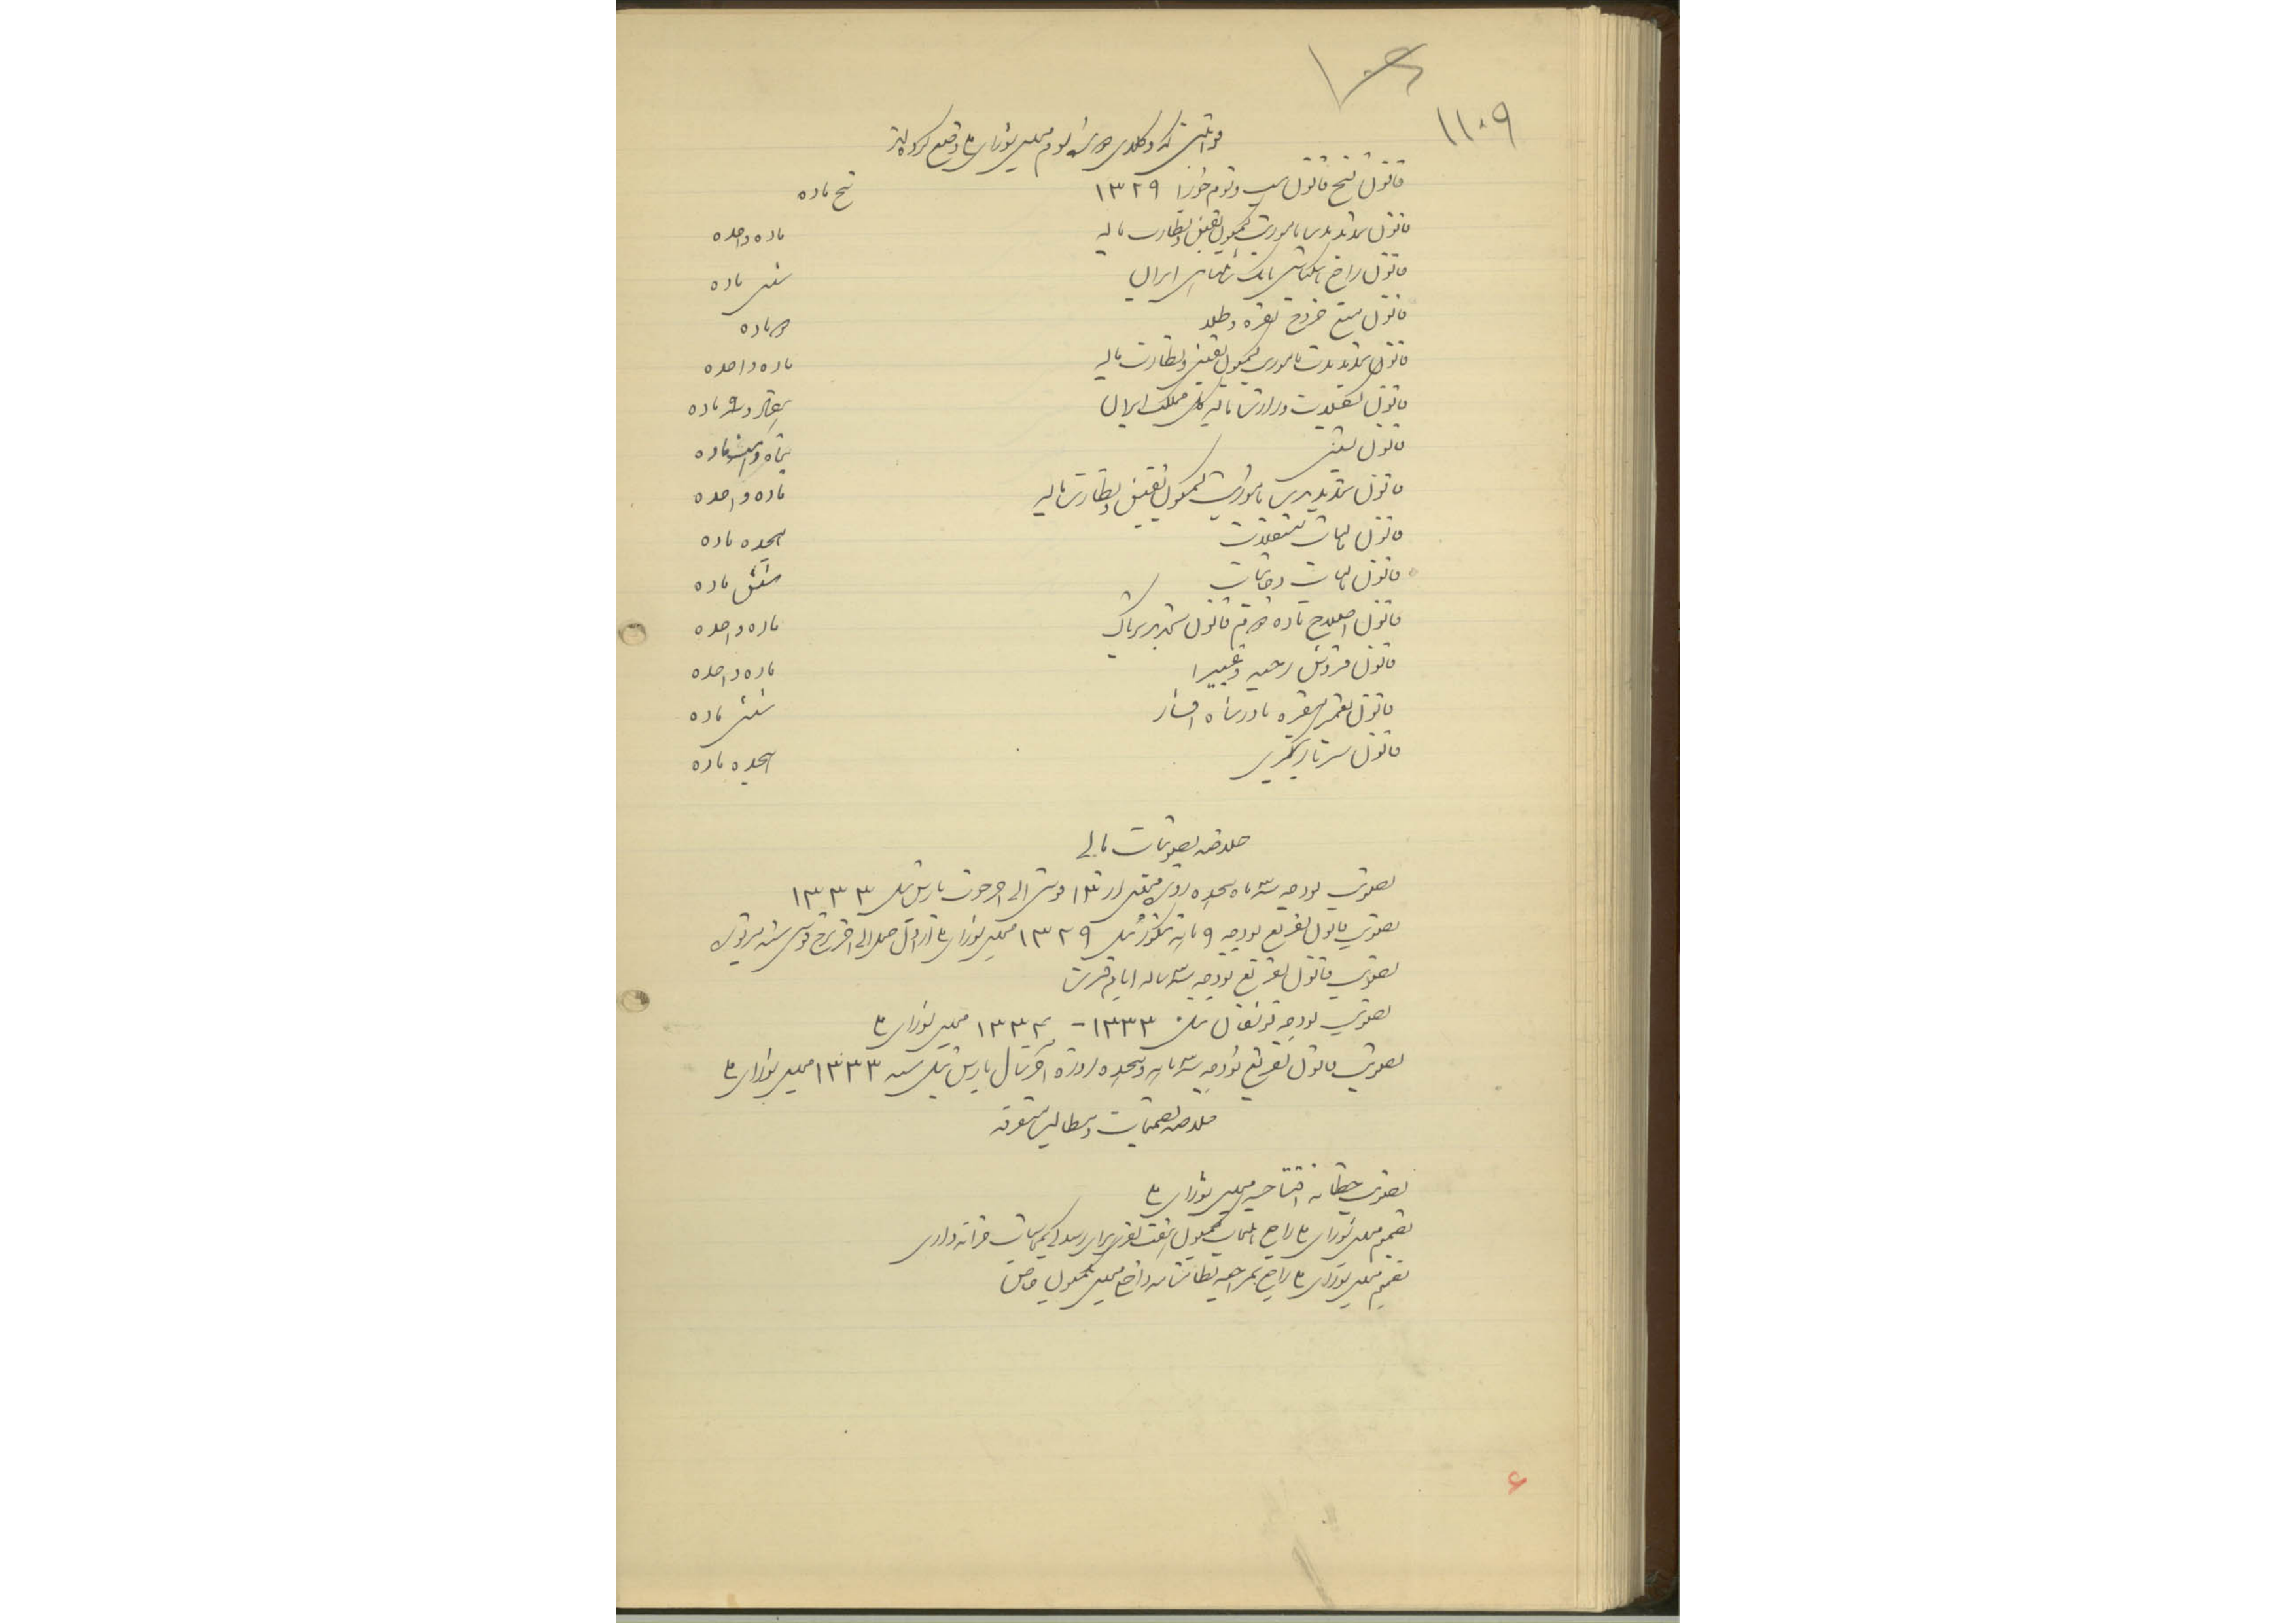 ۱۱۰۹
قوانینی که وکلای دوره سوم مجلس شورای ملی وضع کرده‌اند
قانون نسخ قانون بیست و سوم جوزا ۱۳۲۹ پنج ماده
قانون تمدید مدت ماموریت کمیسیون تفتیش و نظارت مالیه ماده واحده
قانون راجع باسکناس بانک شاهنشاهی ایران شش ماده
قانون منع خروج نقره و طلا ماده
قانون تمدید مدت ماموریت کمیسیون تفتیش و نظارت مالیه ماده واحده
قانون تشکیلات وزارت مالیه کل مملکت ایران ماده
قانون ماده
قانون تمدید مدت ماموریت کمیسیون تفتیش و نظارت مالیه ماده واحده
قانون مالیات مستغلات هیجده ماده
قانون مالیات دخانیات شش ماده
قانون اصلاح ماده قانون تحدید تریاک ماده واحده
قانون فروش ماده واحده
قانون نقره شش ماده
قانون سربازگیری هیجده ماده
خلاصه تصویبات مالی
تصویب بودجه سه ماه هیجده روز مجلس از قوس الی آخر حوت بارس ئیل ۱۳۳۳
تصویب قانون تفریغ بودجه ۹ ماهه تنگوزئیل ۱۳۲۹ مجلس شورای ملی از اول حمل الی آخر برج قوس
تصویب قانون تفریغ بودجه سه ساله ایام فترت
تصویب بودجه توشقان ئیل ۱۳۳۳ - ۱۳۳۴ مجلس شورای ملی
تصویب قانون تفریغ بودجه سه ماهه و هیجده روزه آخر سال بارس ئیل سنه ۱۳۳۳ مجلس شورای ملی
خلاصه تصمیمات و مطالب متفرقه
تصویب خطابه افتتاحیه مجلس شورای ملی
تصمیم مجلس شورای ملی راجع بانتخاب کمیسیون هفت نفری برای رسیدگی بمحاسبات خزانه داری
تصمیم مجلس شورای ملی راجع بمراجعه نظامنامه داخلی مجلس بکمیسیون خاص
۶